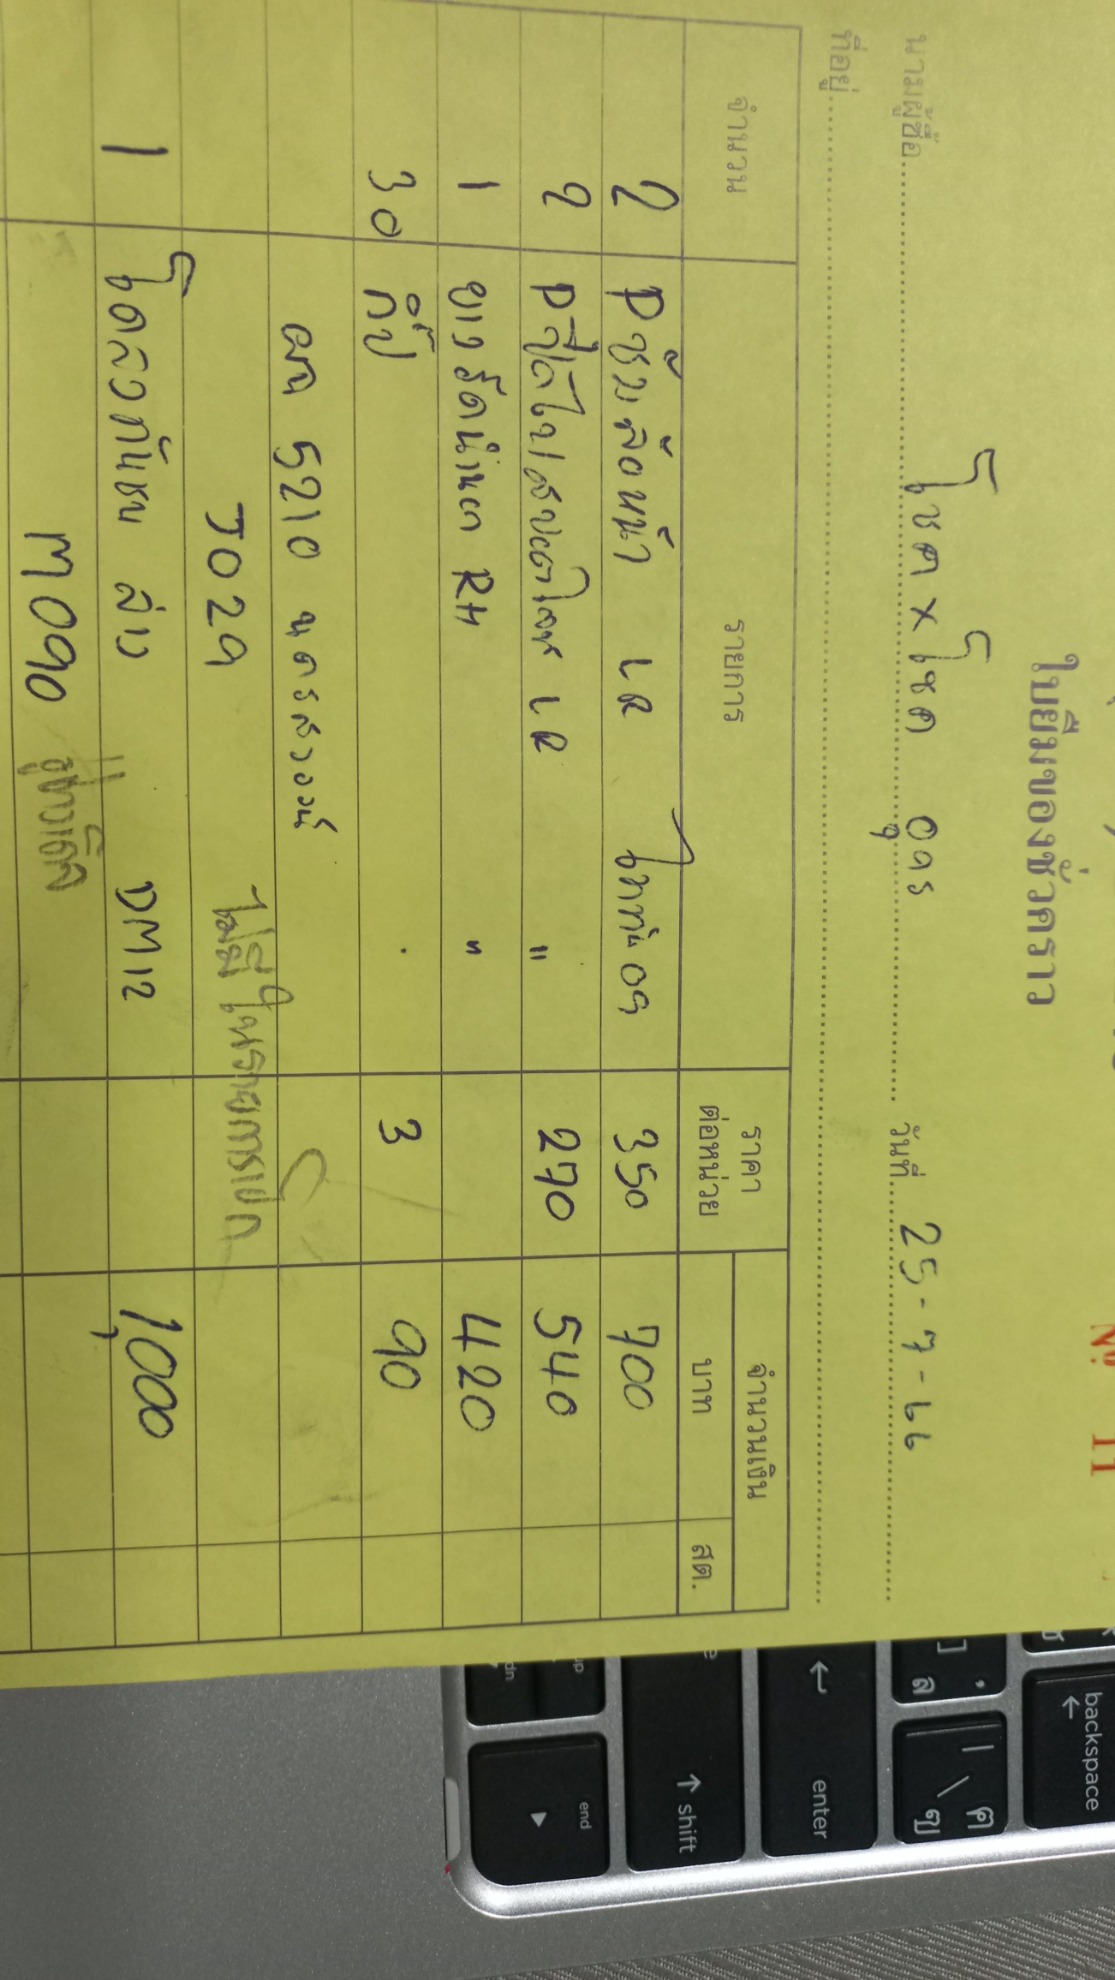 Nº 11
ใบยืมของชั่วคราว
นามผู้ซื้อ โชค x โชค อุดร วันที่ 25-7-66
ที่อยู่
จำนวน รายการ ราคาต่อหน่วย จำนวนเงิน
บาท สต.
2 Pซับล้อหน้า LR ไททัน 09 350 700
2 Pปิดไฟ LR " 270 540
1 ยาง RH " 420
30 กิ๊ป 3 90
ผฉ 5210 นครสวรรค์
J029 ไม่มีในรายการเบิก
1 โดลวกันชน ล่าง DM12 1,000
M090
backspace
enter
shift
end